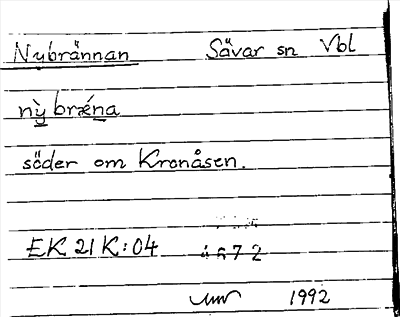 Nybrännan Sävar sn Vbl
nỳ brǽna
söder om Kronåsen.
EK 21 K:04 4672
1992